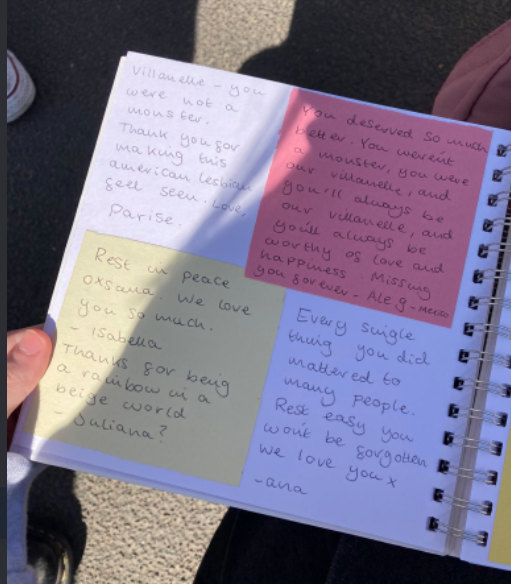 Villanelle - you
were not a
monster.
Thank you for
making this
american lesbian
feel seen. Love,
Parise.
You deserved so much
better. You weren't
a monster, you were
our villanelle, and
you'll always be
our villanelle, and
you'll always be
worthy of love and
happiness. Missing
you forever - Ale g - Mexico
Rest in peace
oxsana. We love
you so much.
- Isabella
Thanks for being
a rainbow in a
beige world
- Juliana?
Every single
thing you did
mattered to
many people.
Rest easy you
won't be forgotten
we love you x
- ana